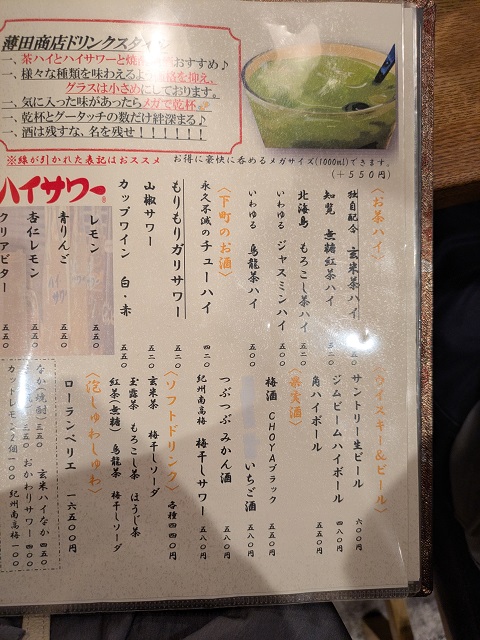 薄田商店ドリンクスタイル
一、茶ハイとハイサワーと焼酎 おすすめ♪
一、様々な種類を味わえるよう価格を抑え、
グラスは小さめにしております。
一、気に入った味があったらメガで乾杯
一、乾杯とグータッチの数だけ絆深まる♪
一、酒は残すな、名を残せ！！！！！！
※線が引かれた表記はおススメ
お得に豪快に呑めるメガサイズ(1000ml)できます。
(＋５５０円)
〈お茶ハイ〉
独自配合 玄米茶ハイ
知覧 無糖紅茶ハイ 五五〇
北海島 もろこし茶ハイ 五二〇
いわゆる ジャスミンハイ 五〇〇
いわゆる 烏龍茶ハイ 五〇〇
〈下町のお酒〉
永久不滅のチューハイ 四二〇
もりもりガリサワー 五二〇
山椒サワー 五二〇
カップワイン 白・赤 五五〇
ハイサワー
レモン 五五〇
青りんご 五五〇
杏仁レモン 五五〇
クリアビター 五五〇
ウイスキー&ビール〉
サントリー生ビール 六〇〇円
ジムビームハイボール 四八〇円
角ハイボール 五五〇円
果実酒〉
梅酒 CHOYAブラック 五五〇円
いちご酒 五八〇円
つぶつぶみかん酒 五八〇円
紀州南高梅 梅干しサワー 五八〇円
〈ソフトドリンク〉 各種四四〇円
玄米茶 梅干しソーダ
玉露茶 もろこし茶 ほうじ茶
紅茶(無糖) 烏龍茶 梅干しソーダ
〈泡しゅわしゅわ〉
ローランペリエ 一六五〇〇円
なか焼酎 三五〇 玄米ハイなか 四五〇
三五〇 おかわりサワー 四〇〇
カットレモン2個 一〇〇 紀州南高梅 一〇〇